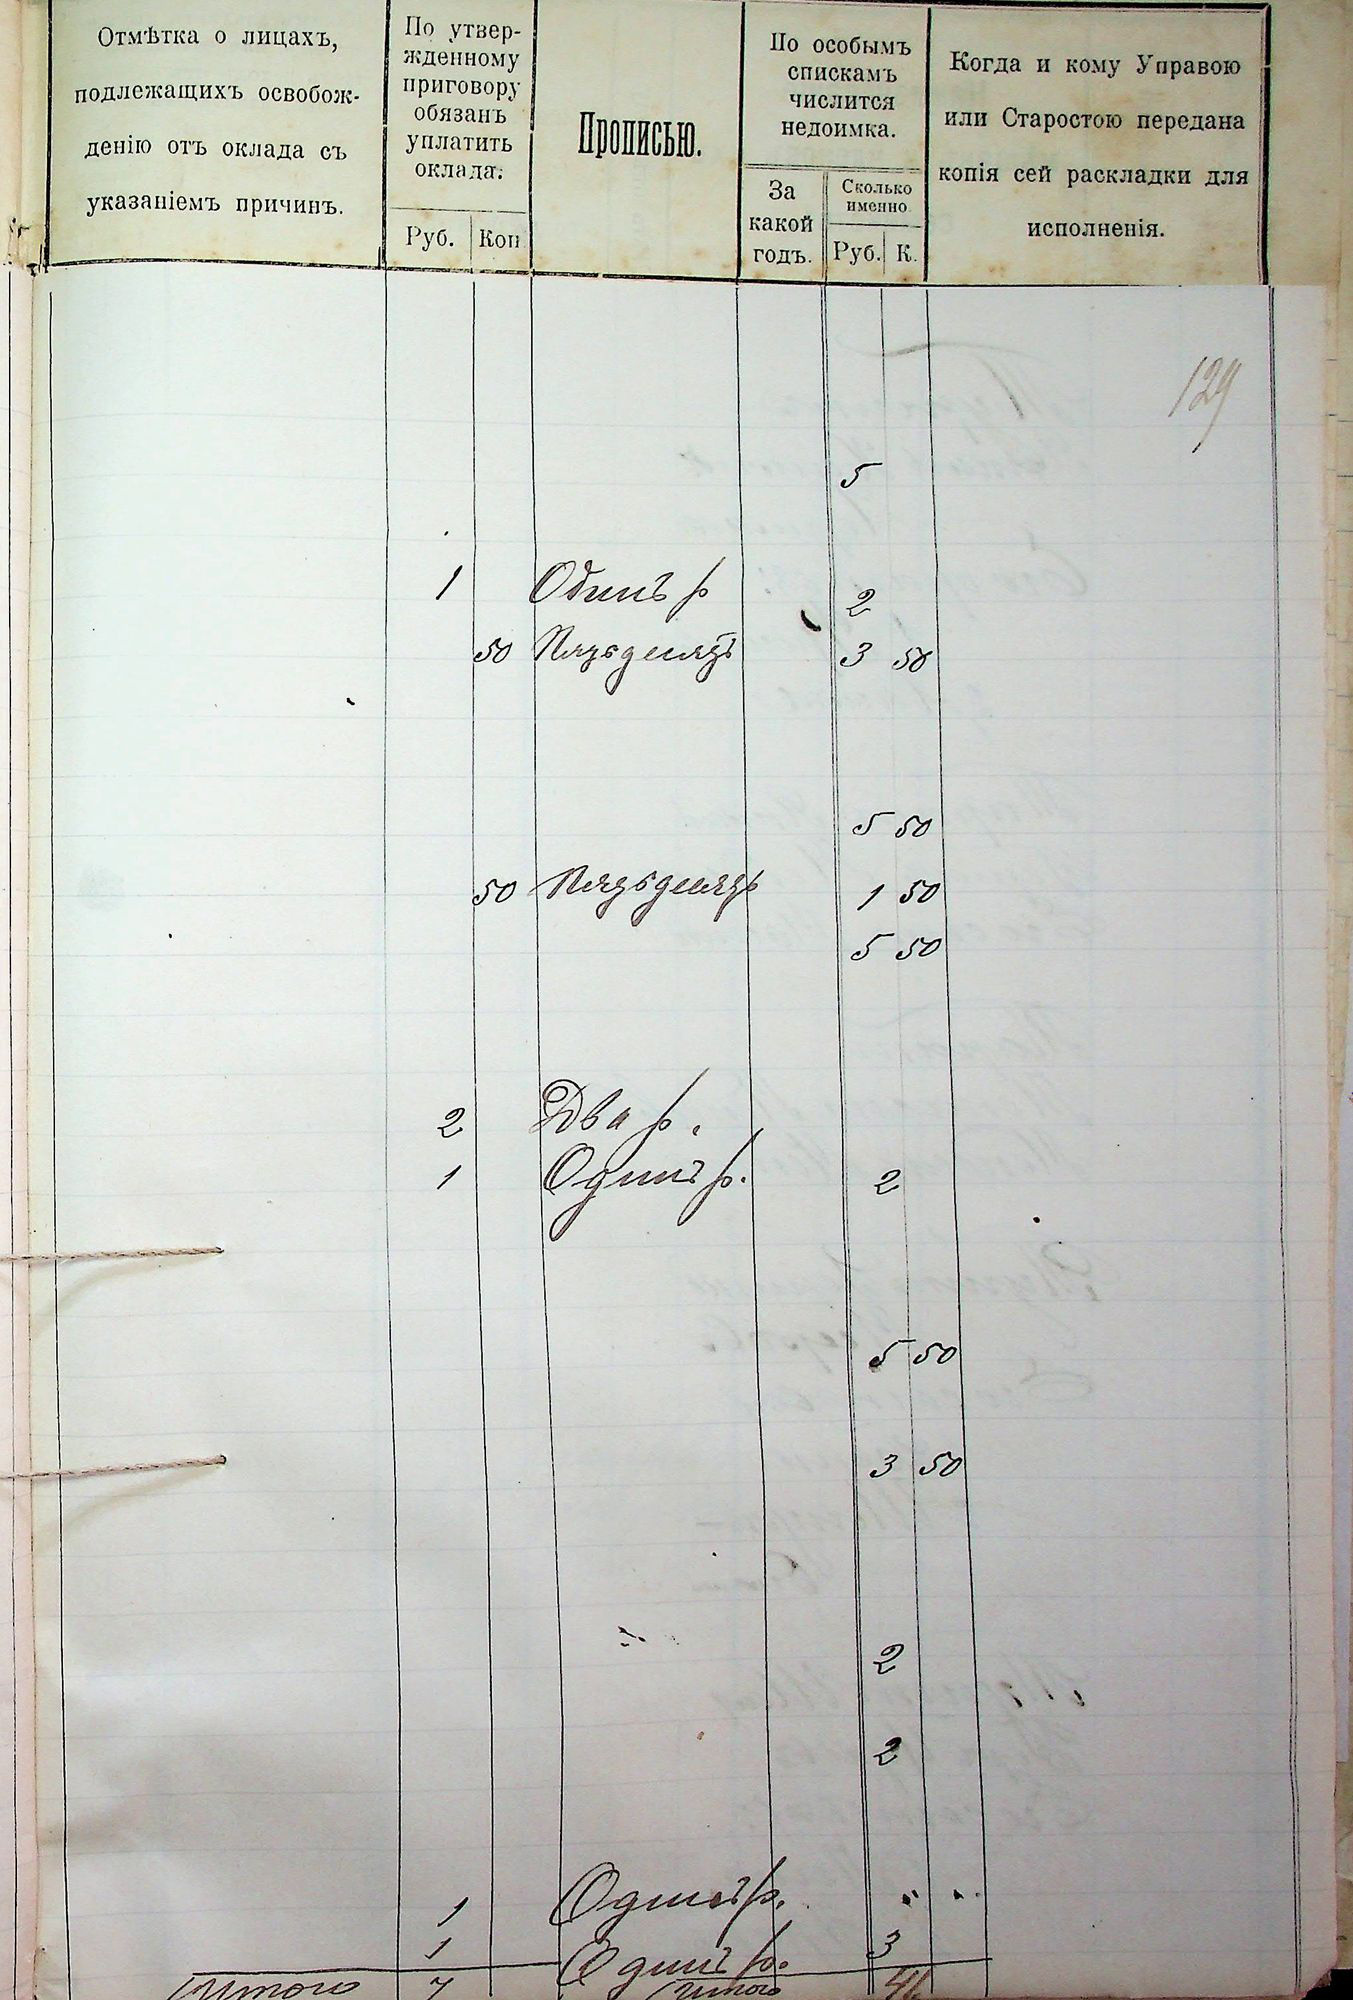 Отмѣтка о лицахъ,
подлежащихъ освобож-
денію отъ оклада съ
указаніемъ причинъ.
По утвер-
жденному
приговору
обязанъ
уплатить
оклада:
Руб. Коп
Прописью.
По особымъ
спискамъ
числится
недоимка.
За
какой
годъ.
Сколько
именно
Руб. К.
Когда и кому Управою
или Старостою передана
копія сей раскладки для
исполненія.
129
5
1 Одинъ р 2
50 Пятьдесятъ 3 50
5 50
50 Пятьдесятъ 1 50
5 50
2 Два р.
1 Одинъ р. 2
5 50
3 50
2
2
1 Одинъ р.
1 Одинъ р. 3
Итого 7 Итого 41